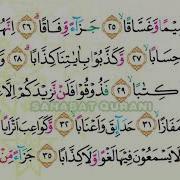 مِيمًا وَغَسَّاقًا ٢٥ جَزَآءً وِفَاقًا ٢٦
حِسَابًا ٢٧ وَكَذَّبُوا۟ بِـَٔايَـٰتِنَا كِذَّابًا ٢٨ وَ
كِتَـٰبًا ٢٩ فَذُوقُوا۟ فَلَن نَّزِيدَكُمْ إِلَّا
SAHABAT QURANI
مَفَازًا ٣١ حَدَآئِقَ وَأَعْنَـٰبًا ٣٢ وَكَوَاعِبَ أَتْرَابًا
لَّا يَسْمَعُونَ فِيهَا لَغْوًا وَلَا كِذَّٰبًا ٣٥ جَزَآءً مِّن